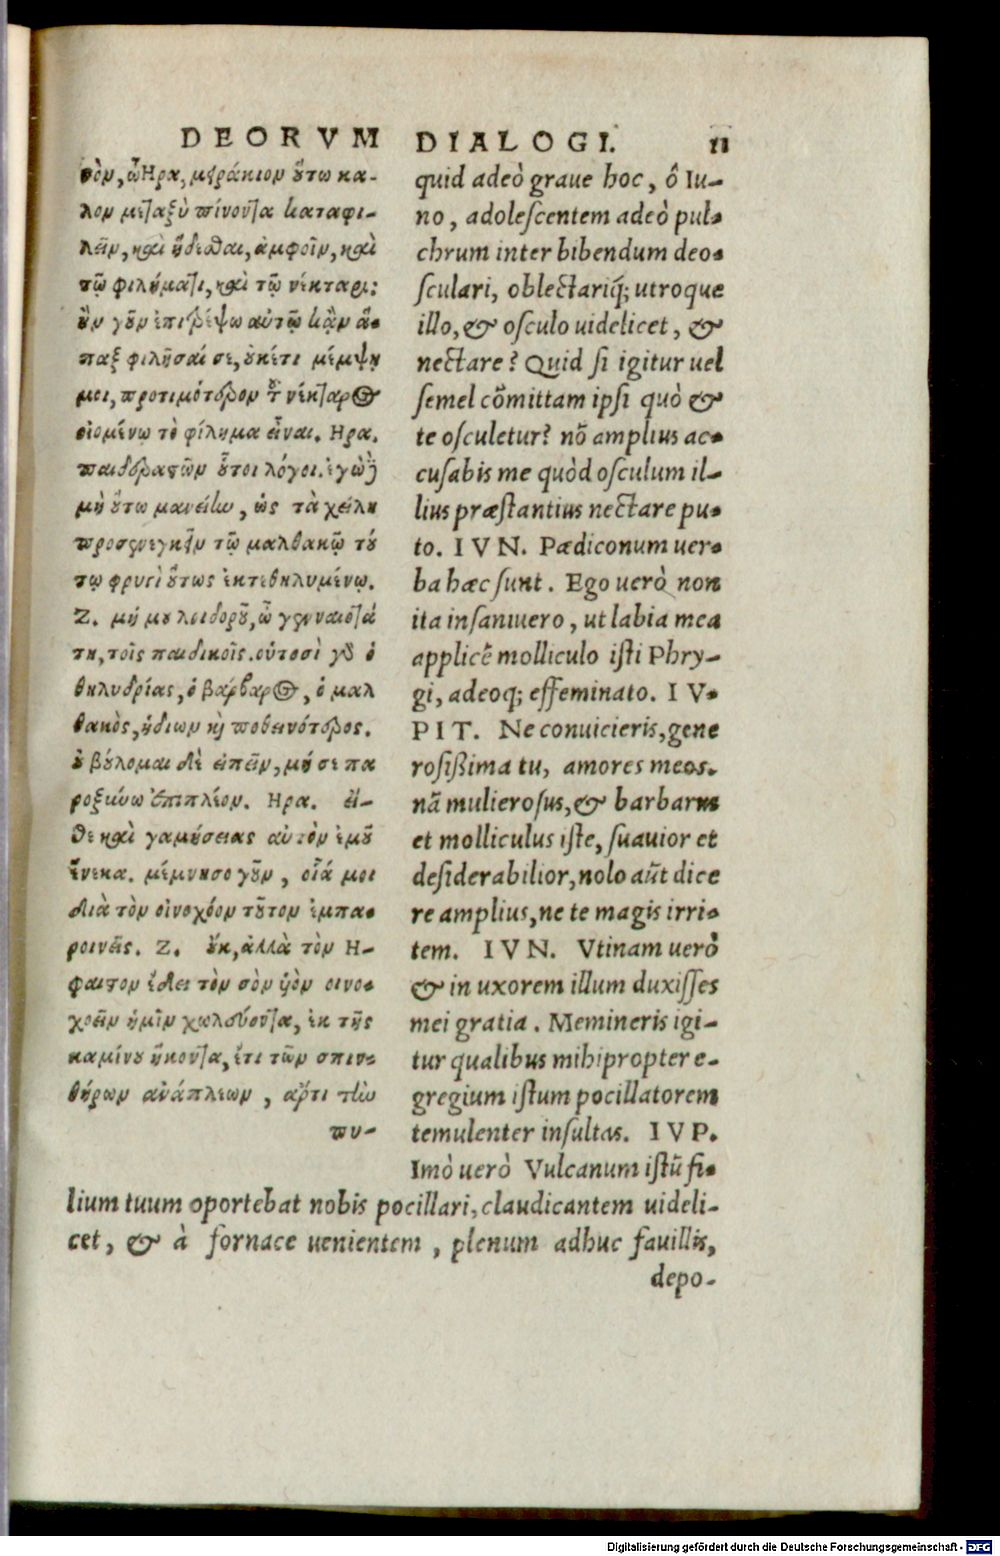 DEORVM DIALOGI. 11
τὸν, ὦ Ἥρα, μειράκιον οὕτω κα-
λὸν μεταξὺ πίνοντα καταφι-
λεῖν, καὶ ἥδεσθαι, ἀμφοῖν, καὶ
τῷ φιλήματι, καὶ τῷ νέκταρι;
ἢν γοῦν ἐπιτρέψω αὐτῷ κἂν ἅ-
παξ φιλῆσαί σε, οὐκέτι μέμψῃ
μοι, προτιμότερον τοῦ νέκταρος
οἰομένῳ τὸ φίλημα εἶναι. Ηρα.
παιδεραστῶν οὗτοι λόγοι. ἐγὼ δὲ
μὴ οὕτω μανείην, ὡς τὰ χείλη
προσενεγκεῖν τῷ μαλθακῷ τού
τῳ φρυγὶ οὕτως ἐκτεθηλυμένῳ.
Ζ. μή μοι λοιδοροῦ, ὦ γενναιοτά
τη, τοῖς παιδικοῖς. οὑτοσὶ γὰρ ὁ
θηλυδρίας, ὁ βάρβαρος, ὁ μαλ
θακὸς, ἡδίων καὶ ποθεινότερος.
οὐ βούλομαι δὲ εἰπεῖν, μή σε πα
ροξύνω ἐπιπλέον. Ηρα. εἴ-
θε καὶ γαμήσειας αὐτὸν ἐμοῦ
ἕνεκα. μέμνησο γοῦν, οἷά μοι
διὰ τὸν οἰνοχόον τοῦτον ἐμπα-
ροινεῖς. Ζ. οὔκ, ἀλλὰ τὸν Η-
φαιστον ἔδει τὸν σὸν υἱὸν οἰνο-
χοεῖν ἡμῖν χωλεύοντα, ἐκ τῆς
καμίνου ἥκοντα, ἔτι τῶν σπιν-
θήρων ἀνάπλεων, ἄρτι τὴν
πυ-
quid adeò graue hoc, ô Iu-
no, adolescentem adeò pul-
chrum inter bibendum deo-
sculari, oblectariq́; utroque
illo, & osculo uidelicet, &
nectare? Quid si igitur uel
semel cõmittam ipsi quò &
te osculetur? nõ amplius ac-
cusabis me quòd osculum il-
lius præstantius nectare pu-
to. IVN. Pædiconum uer-
ba hæc sunt. Ego uerò non
ita insaniuero, ut labia mea
applicẽ molliculo isti Phry-
gi, adeoq; effeminato. IV-
PIT. Ne conuicieris, gene
rosißima tu, amores meos.
nã mulierosus, & barbarus
et molliculus iste, suauior et
desiderabilior, nolo aũt dice
re amplius, ne te magis irri-
tem. IVN. Vtinam uerò
& in uxorem illum duxisses
mei gratia. Memineris igi-
tur qualibus mihi propter e-
gregium istum pocillatorem
temulenter insultas. IVP.
Imò uerò Vulcanum istũ fi-
lium tuum oportebat nobis pocillari, claudicantem uideli-
cet, & à fornace uenientem, plenum adhuc fauillis,
depo-
Digitalisierung gefördert durch die Deutsche Forschungsgemeinschaft - DFG